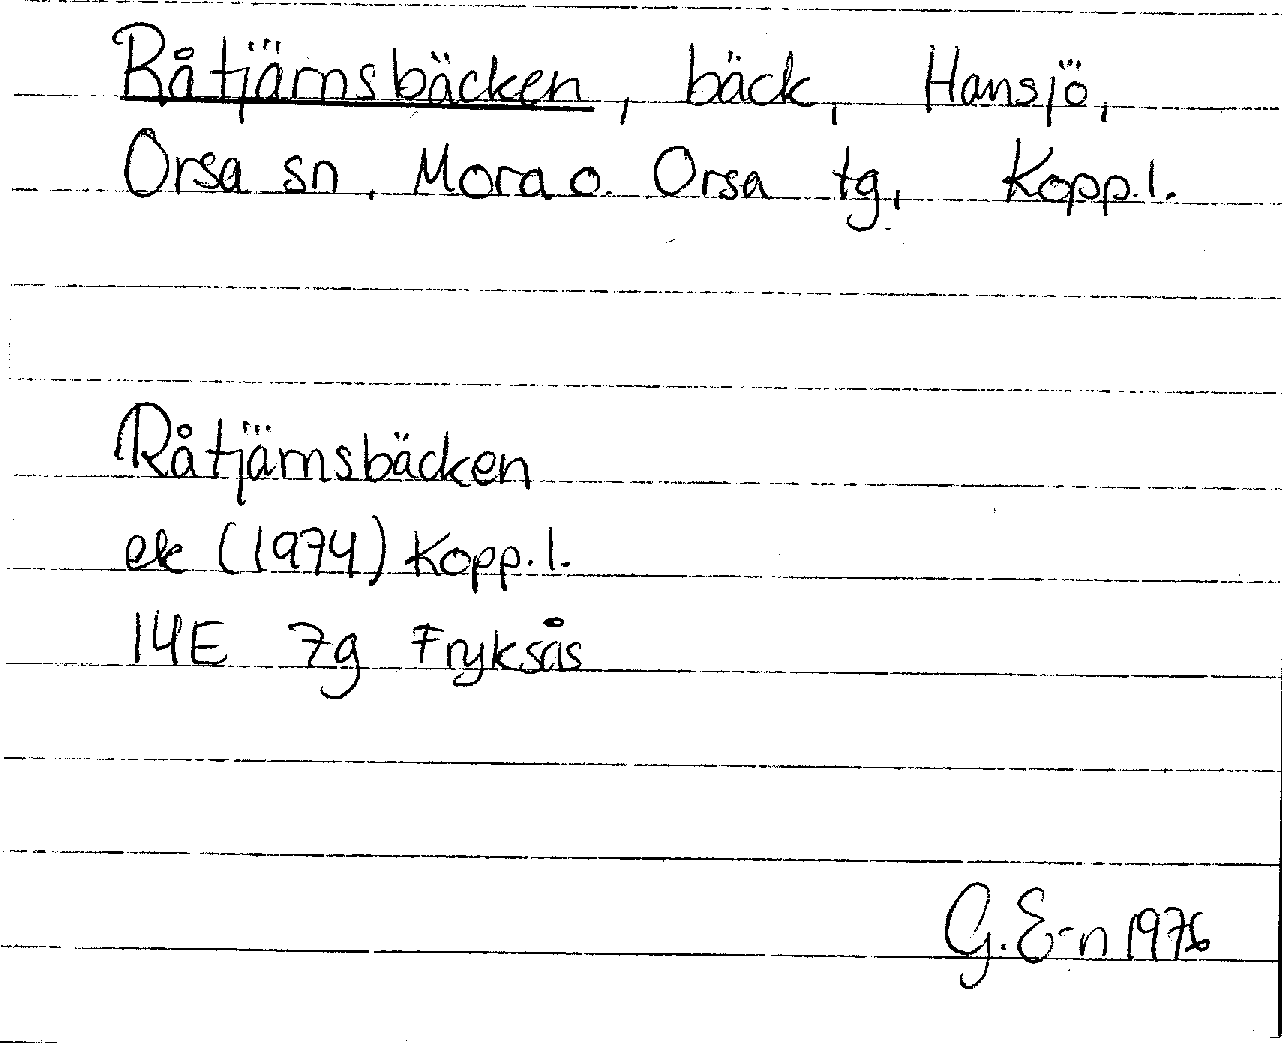 Råtjärnsbäcken, bäck, Hansjö,
Orsa sn, Mora o. Orsa tg, Kopp.l.
Råtjärnsbäcken
ek (1974) Kopp.l.
14E 7g Fryksås
G.E-n 1976